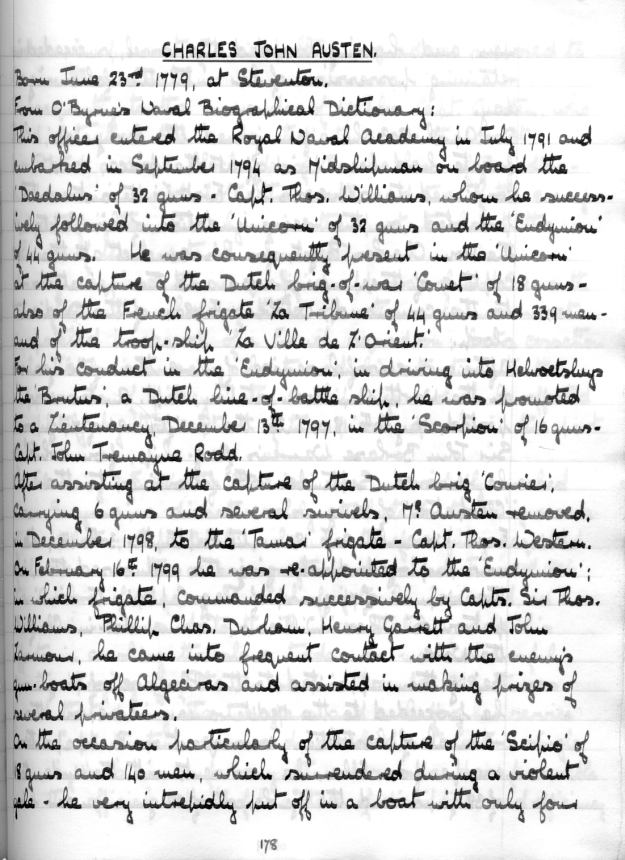 CHARLES JOHN AUSTEN.
Born June 23rd 1779, at Steventon.
From O'Byrne's Naval Biographical Dictionary:
This officer entered the Royal Naval Academy in July 1791 and
embarked in September 1794 as Midshipman on board the
'Daedalus' of 32 guns - Capt. Thos. Williams, whom he success-
ively followed into the 'Unicorn' of 32 guns and the 'Endymion'
of 44 guns. He was consequently present in the 'Unicorn'
at the capture of the Dutch brig-of-war 'Comet' of 18 guns -
also of the French frigate 'La Tribune' of 44 guns and 339 men -
and of the troop-ship 'La Ville de L'Orient.'
For his conduct in the 'Endymion', in driving into Helvoetsluys
the 'Brutus', a Dutch line-of-battle ship, he was promoted
to a Lieutenancy, December 13th 1797, in the 'Scorpion' of 16 guns -
Capt. John Tremayne Rodd.
After assisting at the capture of the Dutch brig 'Courier',
carrying 6 guns and several swivels, Mr Austen removed,
in December 1798, to the 'Tamar' frigate - Capt. Thos. Western.
On February 16th 1799 he was re-appointed to the 'Endymion';
in which frigate, commanded successively by Capts. Sir Thos.
Williams, Phillip Chas. Durham, Henry Garrett and John
Larmour, he came into frequent contact with the enemy's
gun-boats off Algeciras and assisted in making prizes of
several privateers.
On the occasion particularly of the capture of the 'Scipio' of
18 guns and 140 men, which surrendered during a violent
gale - he very intrepidly put off in a boat with only four
178